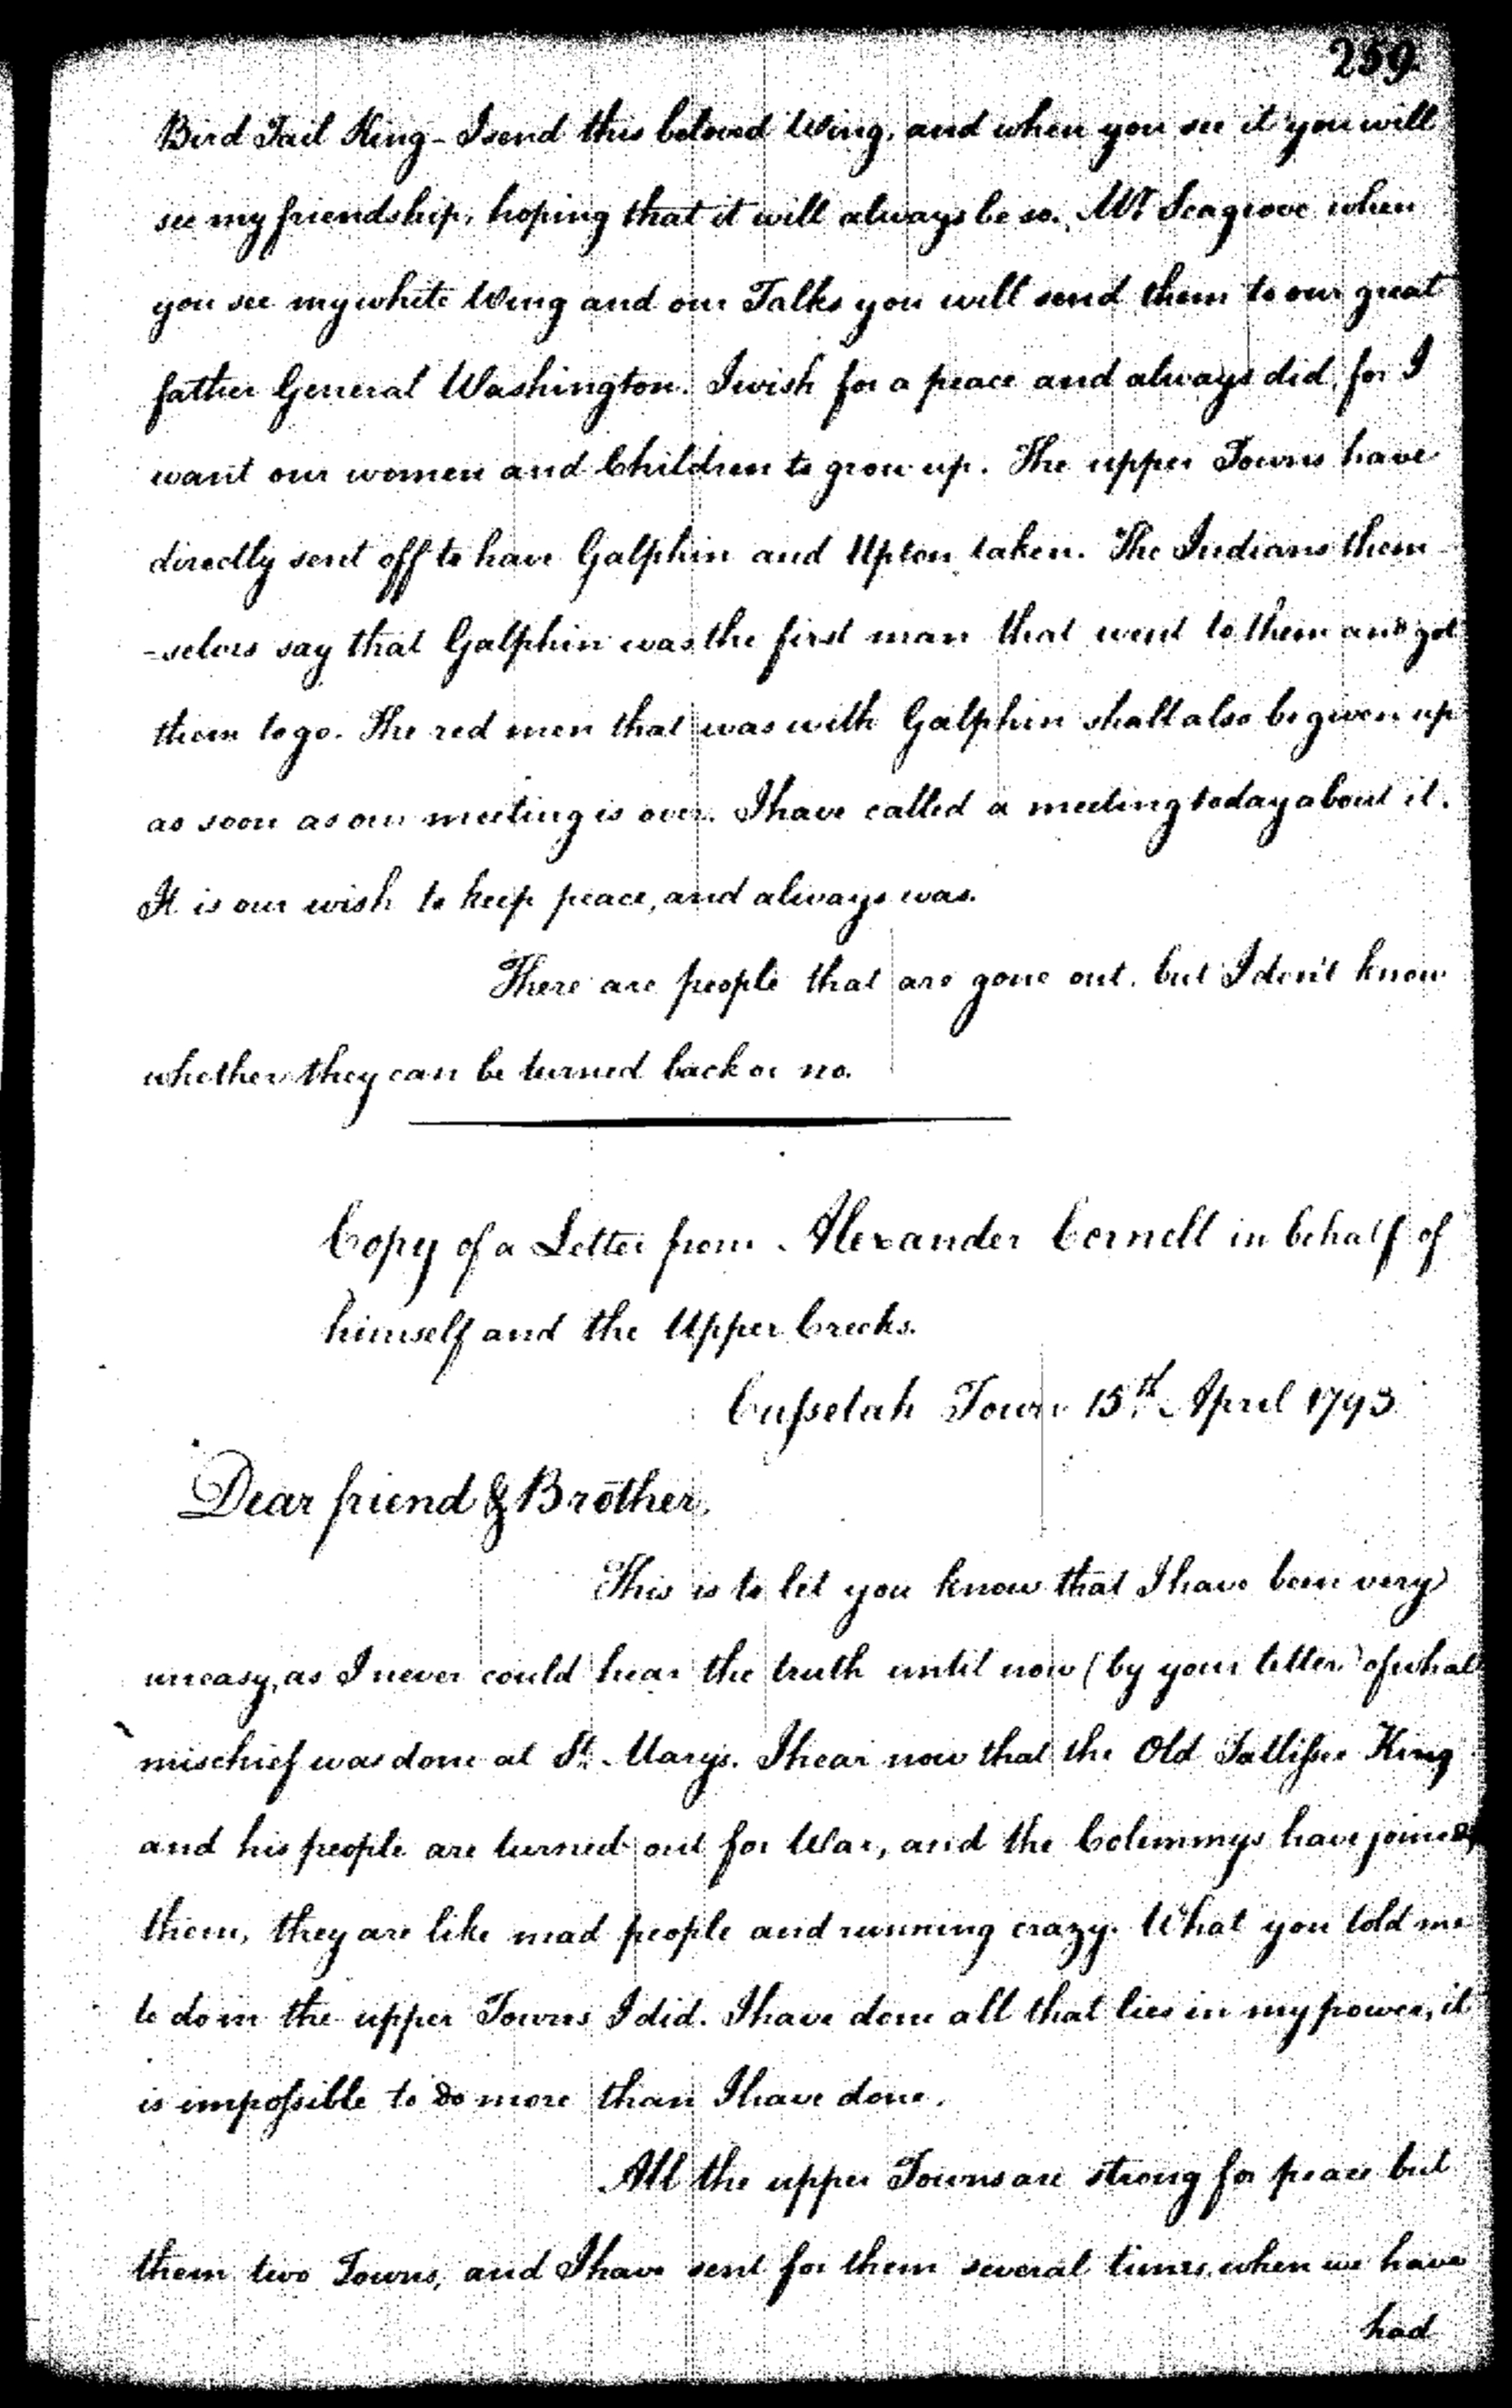 259.
Bird Tail King - I send this beloved Wing, and when you see it you will
see my friendship, hoping that it will always be so. Mr. Seagrove when
you see my white Wing and our Talks you will send them to our great
father General Washington. I wish for a peace and always did, for I
want our women and Children to grow up. The upper Towns have
directly sent off to have Galphin and Upton taken. The Indians them-
-selves say that Galphin was the first man that went to them and got
them to go. The red men that was with Galphin shall also be given up
as soon as our meeting is over. I have called a meeting today about it.
It is our wish to keep peace, and always was.
There are people that are gone out, but I don't know
whether they can be turned back or no.
Copy of a Letter from Alexander Cornell in behalf of
himself and the Upper Creeks.
Cußetah Town 15th. April 1793
Dear friend & Brother,
This is to let you know that I have been very
uneasy, as I never could hear the truth until now (by your letter) of what
mischief was done at St. Marys. I hear now that the Old Tallißee King
and his people are turned out for War, and the Colemmys have joined
them, they are like mad people and running crazy. What you told me
to do in the upper Towns I did. I have done all that lies in my power, it
is impoßible to do more than I have done.
All the upper Towns are strong for peace but
them two Towns, and I have sent for them several times, when we have
had